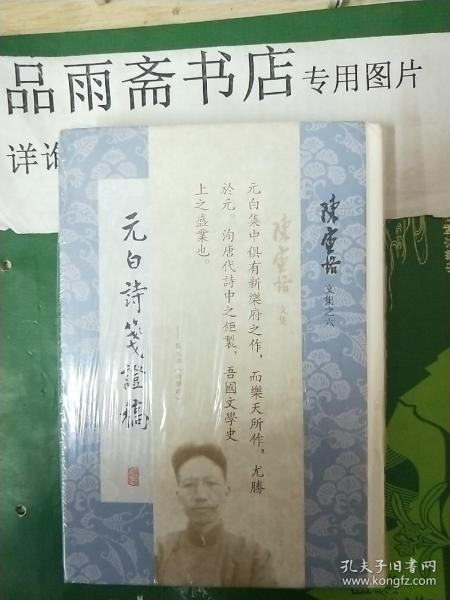 品雨斋书店专用图片
详询
陳寅恪
文集之六
陳寅恪
文集
元白集中俱有新樂府之作，而樂天所作，尤勝
於元。洵唐代詩中之鉅製，吾國文學史
上之盛業也。
元白詩箋證稿
孔夫子旧书网
www.kongfz.com